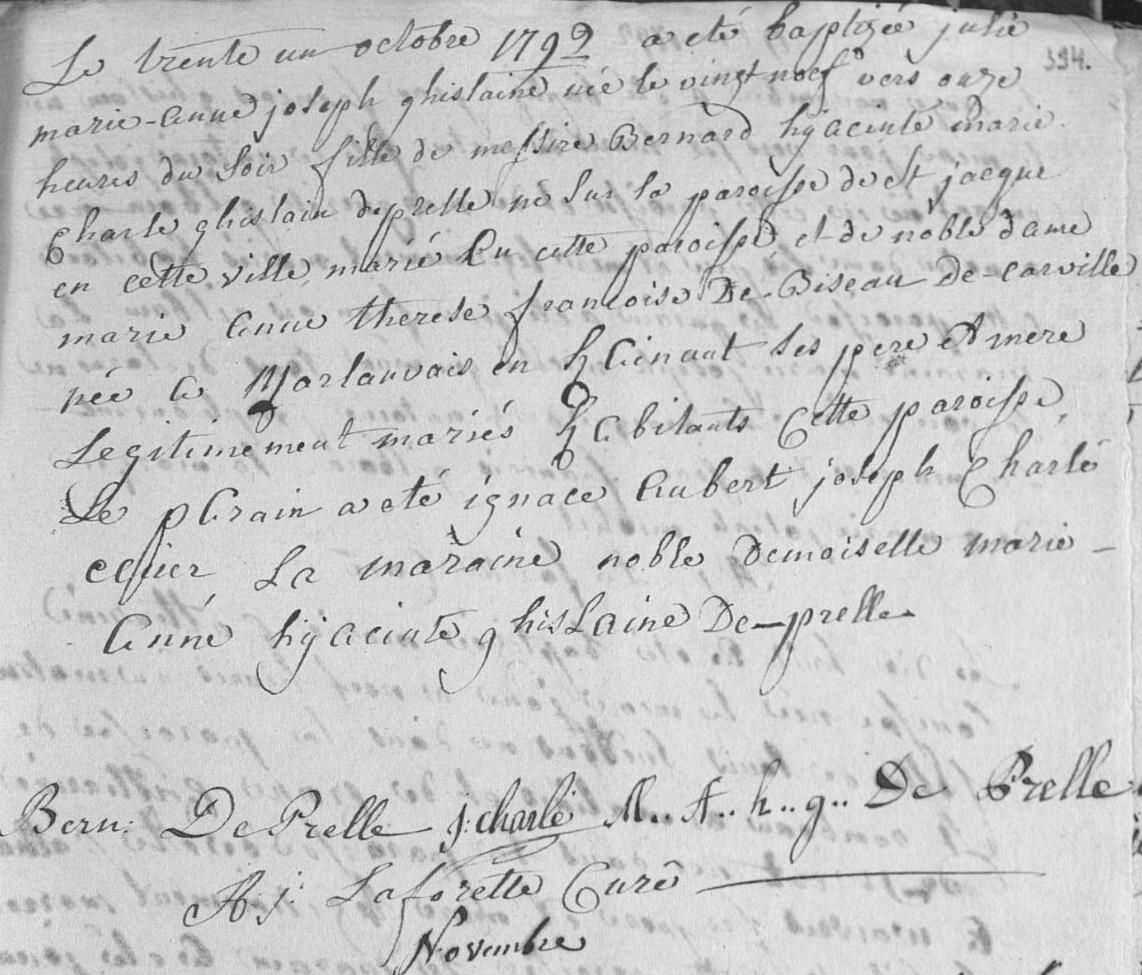 Le trente un octobre 1792 a eté baptizée julie
394.
marie-anne joseph ghislaine née le vingt noef vers onze
heures du soir fille de messire Bernard hyacinte marie
Charle ghislain deprelle né sur la paroisse de st jacque
en cette ville, marié En cette paroisse, et de noble dame
marie Anne therese francoise De-Biseau De-carville
née a Marlauvais en hainaut ses pere et mere
Legitimement mariés habitants Cette paroisse,
Le parain a eté ignace Aubert joseph Charlé
ecuier, La maraine noble demoiselle marie-
Anne hyacinte ghislaine De-prelle
Bern: De Prelle j: charlé M.. A.. h.. g.. De Prelle
A j: Laforette Curé
Novembre